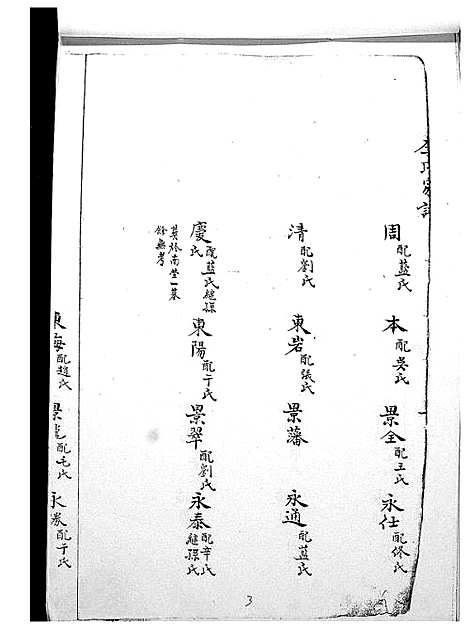 李氏家譜
周配藍氏 本配吳氏 景全配王氏 永仕配修氏
清配劉氏 東岩配張氏 景藩 永通配藍氏
慶配藍氏繼孫氏 東陽配于氏 景翠配劉氏 永泰配辛氏繼孫氏
其於南塋一墓
餘無考
東海配趙氏 景 配毛氏 永 配于氏
3